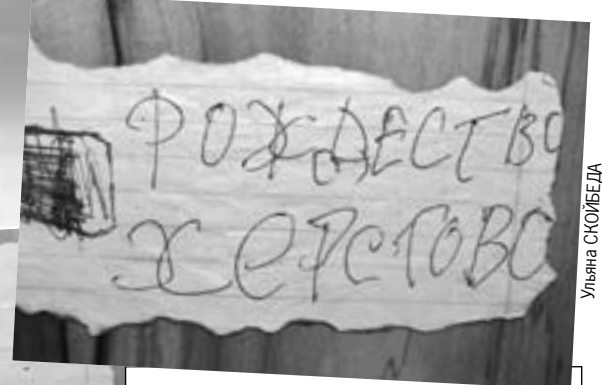 РОЖДЕСТВО
ХеРСТОВО
Ульяна СКОЙБЕДА